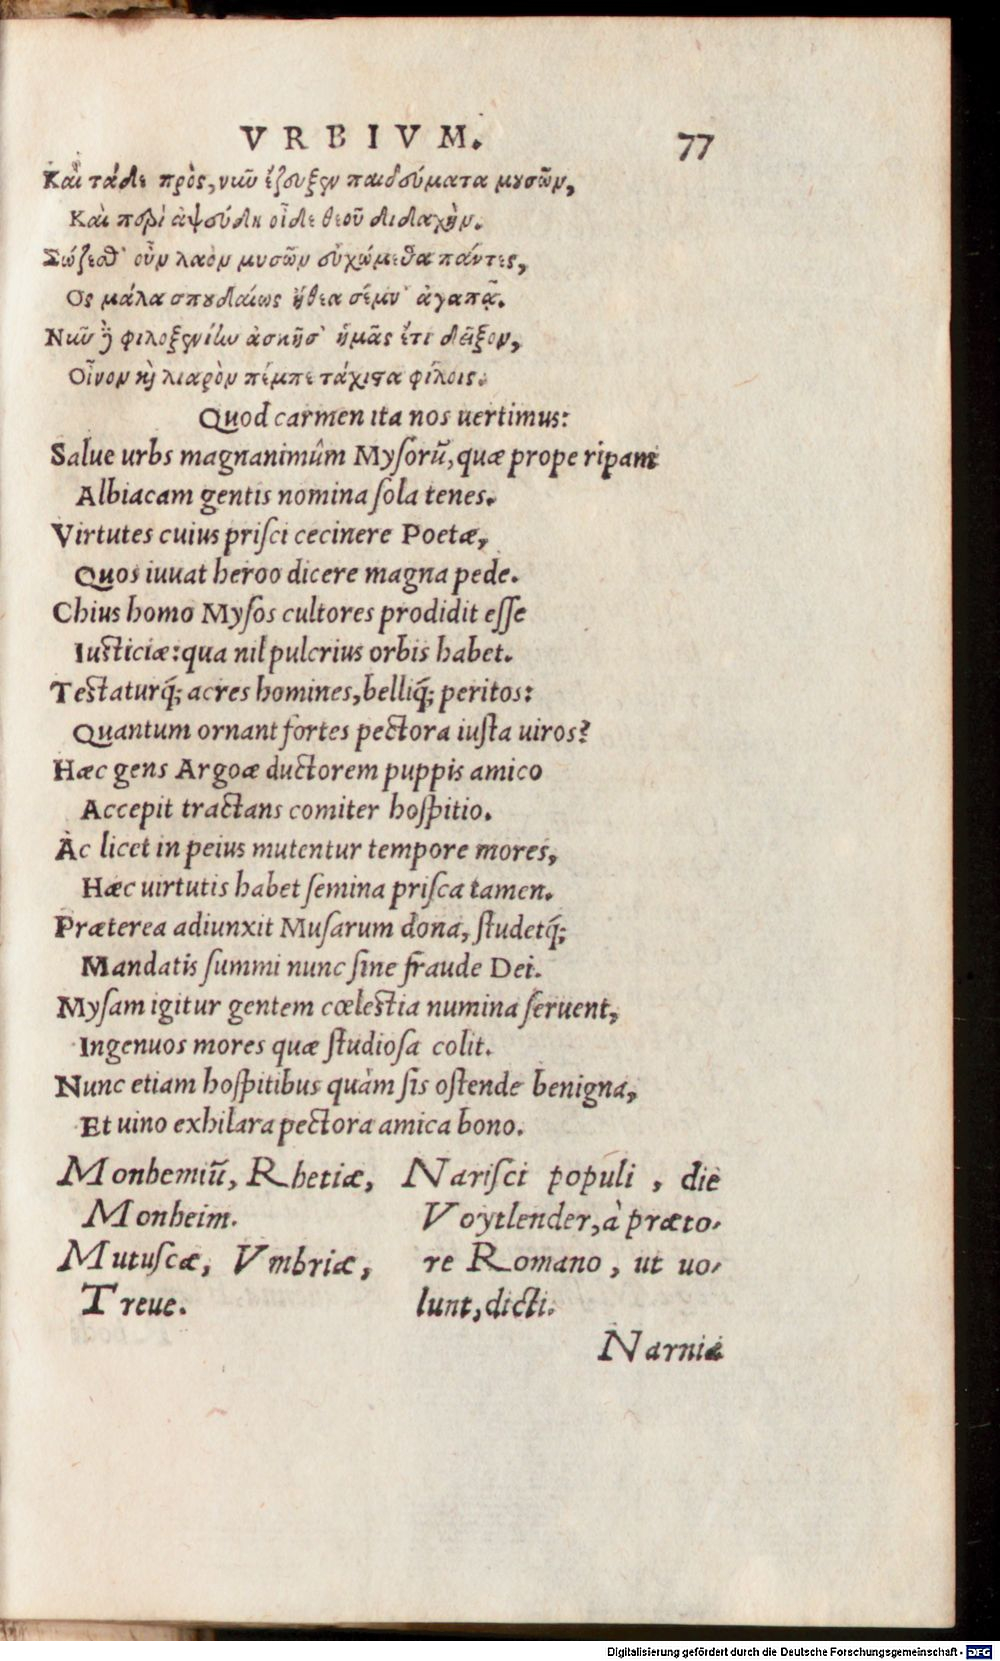 VRBIVM. 77
Καὶ τάδε πρὸς, νῦν ἔζευξεν παιδεύματα μουσῶν,
Καὶ περὶ ἀψευδῆ οἶδε θεοῦ διδαχὴν.
Σώζεσθ᾽ οὖν λαὸν μυσῶν εὐχώμεθα πάντες,
Ος μάλα σπουδαίως ἤθεα σέμν᾽ ἀγαπᾷ.
Νῦν ἢ φιλοξενίην ἀσκῆσ᾽ ἡμᾶς ἔτι δεῖξον,
Οἶνον καὶ λιαρὸν πέμπε τάχιστα φίλοις.
Quod carmen ita nos uertimus:
Salue urbs magnanimûm Mysorū, quæ prope ripam
Albiacam gentis nomina sola tenes.
Virtutes cuius prisci cecinere Poetæ,
Quos iuuat heroo dicere magna pede.
Chius homo Mysos cultores prodidit esse
Iusticiæ: qua nil pulcrius orbis habet.
Testaturq́; acres homines, belliq́; peritos:
Quantum ornant fortes pectora iusta uiros?
Hæc gens Argoæ ductorem puppis amico
Accepit tractans comiter hospitio.
Àc licet in peius mutentur tempore mores,
Hæc uirtutis habet semina prisca tamen.
Præterea adiunxit Musarum dona, studetq́;
Mandatis summi nunc sine fraude Dei.
Mysam igitur gentem cœlestia numina seruent,
Ingenuos mores quæ studiosa colit.
Nunc etiam hospitibus quàm sis ostende benigna,
Et uino exhilara pectora amica bono.
Monhemiū, Rhetiæ,
Monheim.
Mutuscæ, Vmbriæ,
Treue.
Narisci populi, die
Voytlender, à præto-
re Romano, ut uo-
lunt, dicti.
Narnia
Digitalisierung gefördert durch die Deutsche Forschungsgemeinschaft - DFG